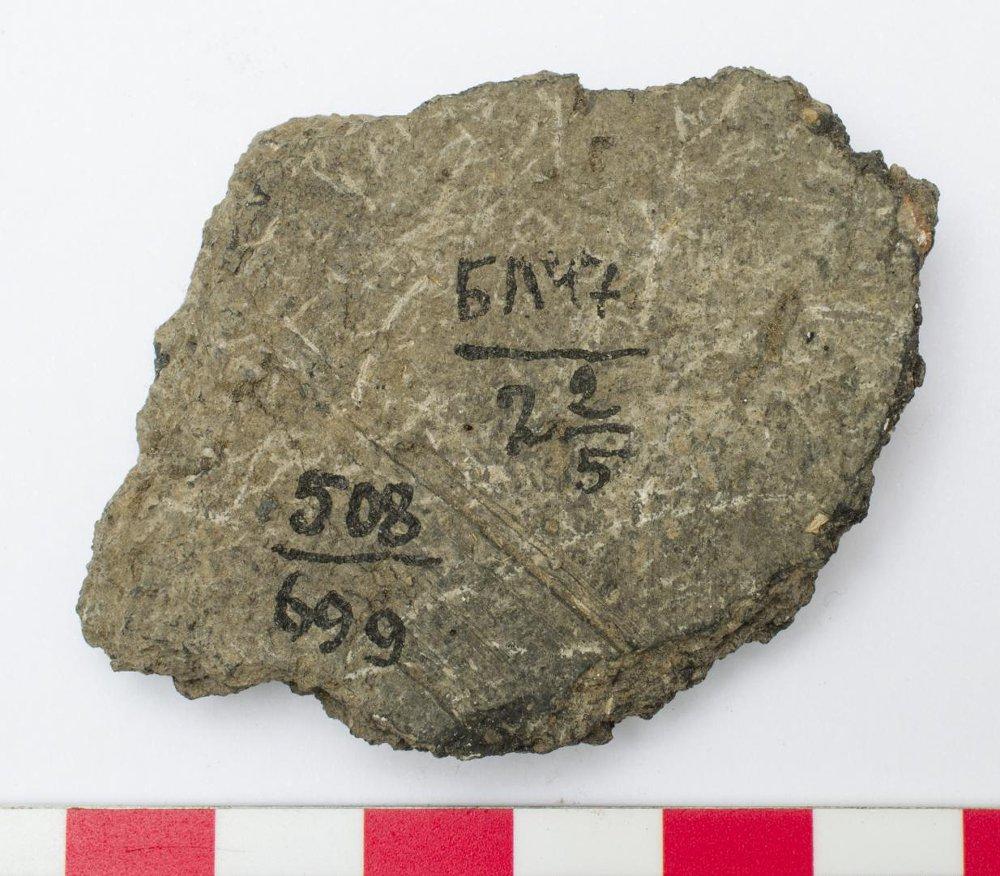 БЛ47
2 2/5
508
699